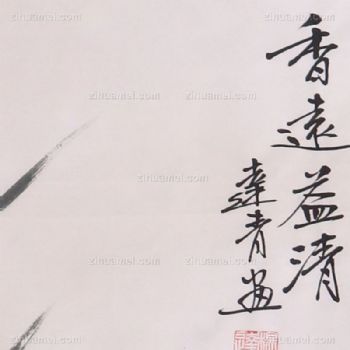 香遠益清
達青畫
zihuamei.com
zihuamei.com
zihuamei.com
zihuamei.com
zihuamei.com
zihuamei.com
zihuamei.com
zihuamei.com
zihuamei.com